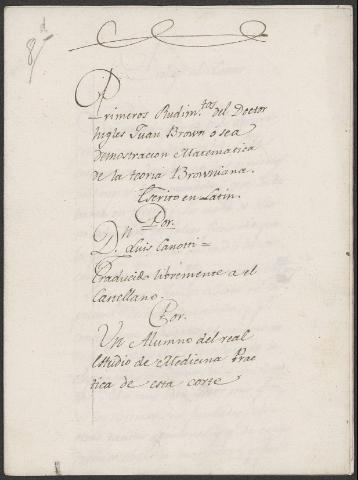 Primeros Rudim.tos del Doctor
Ingles Juan Brown ó sea
Demostracion Matematica
de la teoria Browniana.
Escrito en Latin.
Por.
D.n Luis Canotti=
Traducido libremente a el
Castellano.
Por.
Un Alumno del real
estudio de Medicina Prac
tica de esta corte